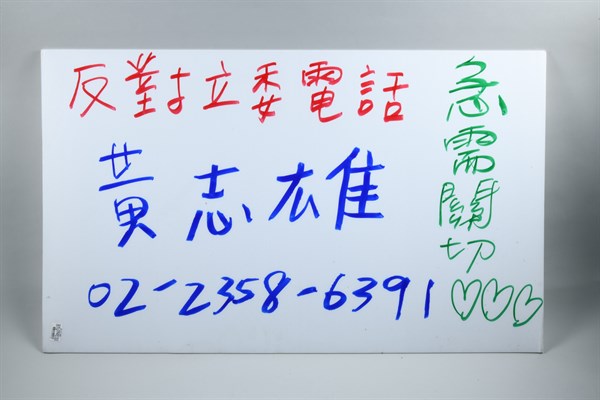 反對立委電話
黃志雄
02-2358-6391
急需關切♡♡♡